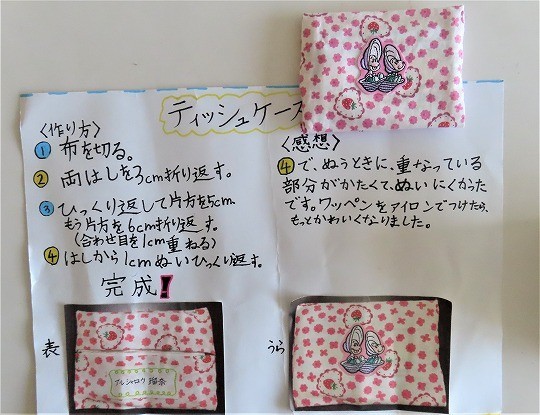 ティッシュケース
〈作り方〉
① 布を切る。
② 両はしを3cm折り返す。
③ ひっくり返して片方を5cm、
もう片方を6cm折り返す。
(合わせ目を1cm重ねる)
④ はしから1cmぬいひっくり返す。
完成!
表
〈感想〉
④で、ぬうときに、重なっている
部分がかたくて、ぬいにくかった
です。ワッペンをアイロンでつけたら、
もっとかわいくなりました。
うら